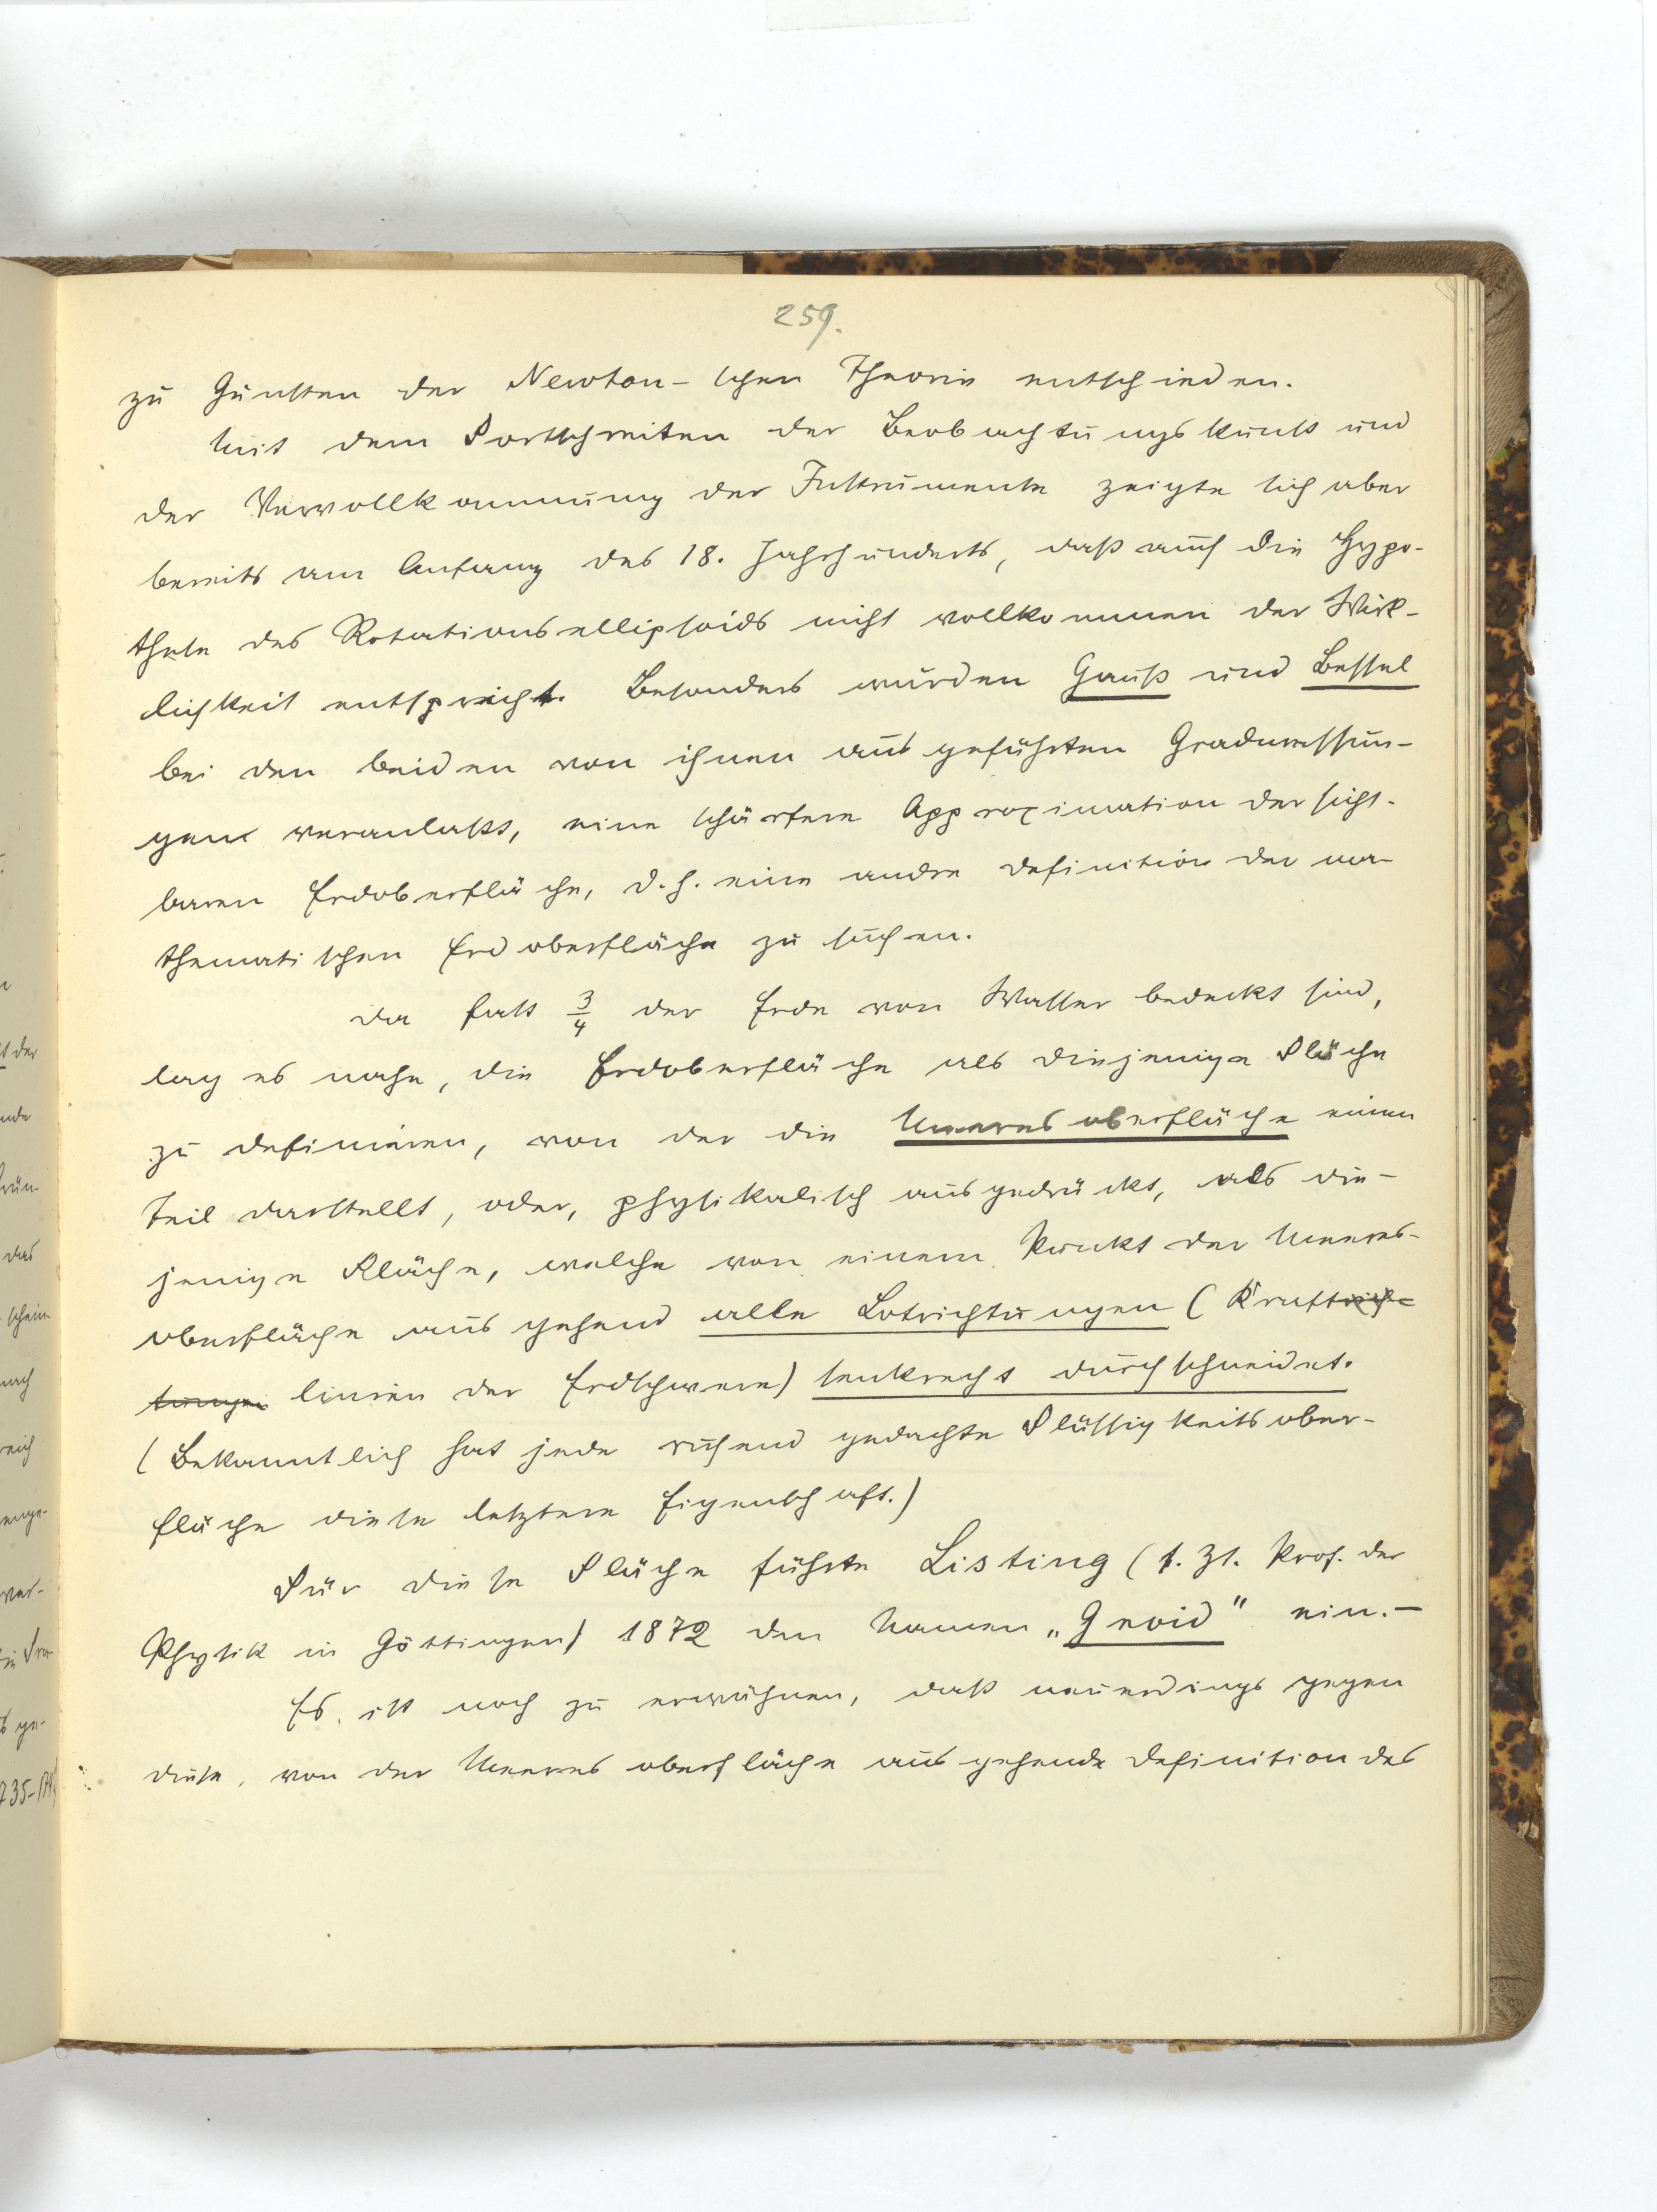 259.
zu Gunsten der Newton-schen Theorie entschieden.
Mit dem Fortschreiten der Beobachtungskunst und
der Vervollkommnung der Instrumente zeigte sich aber
bereits am Anfang des 18. Jahrhunderts, daß auch die Hypo-
these des Rotationsellipsoids nicht vollkommen der Wirk-
lichkeit entspricht. Besonders wurden Gauß und Bessel
bei den beiden von ihnen ausgeführten Gradmessun-
gen veranlaßt, eine schärfere Approximation der sicht-
baren Erdoberfläche, d. h. eine andre Definition der ma-
thematischen Erdoberfläche zu suchen.
Da fast 3/4 der Erde von Wasser bedeckt sind,
lag es nahe, die Erdoberfläche als diejenige Fläche
zu definieren, von der die Meeresoberfläche einen
Teil darstellt, oder, physikalisch ausgedrückt, als die-
jenige Fläche, welche von einem Punkt der Meeres-
oberfläche ausgehend alle Lotrichtungen (Kraftrich-
tungen linien der Erdschwere) senkrecht durchschneidet.
(Bekanntlich hat jede ruhend gedachte Flüssigkeitsober-
fläche diese letztere Eigenschaft.)
Für diese Fläche führte Listing (s. Zt. Prof. der
Physik in Göttingen) 1872 den Namen „Geoid" ein. –
Es ist noch zu erwähnen, daß neuerdings gegen
diese, von der Meeresoberfläche ausgehende Definition des